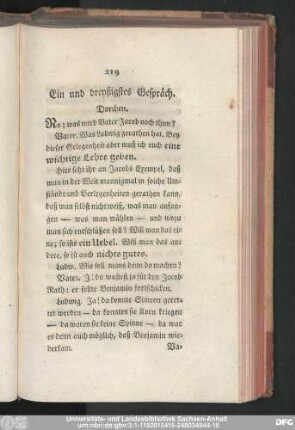 219
Ein und dreyßigstes Gespräch.
Dorchen.
No; was wird Vater Jacob noch thun?
Vater. Was Ludwig gerathen hat. Bey
dieser Gelegenheit aber muß ich euch eine
wichtige Lehre geben.
Hier seht ihr an Jacobs Exempel, daß
man in der Welt mennigmal in solche Um-
stände und Verlegenheiten gerathen kann,
daß man selbst nicht weiß, was man anfan-
gen — was man wählen — und wozu
man sich entschlüßen soll? Will man das ei-
ne; so ists ein Uebel. Will man das an-
dre, so ist auch nichts gutes.
Ludw. Wie soll mans denn da machen?
Vater. J! du wustest ja für den Jacob
Rath: er sollte Benjamin fortschicken.
Ludwig. Ja! da konnte Simeon geret-
tet werden — da konnten sie Korn kriegen
— da waren sie keine Spione — da war
es denn auch möglich, daß Benjamin wie-
derkam.
Va-
Universitäts- und Landesbibliothek Sachsen-Anhalt
urn:nbn:de:gbv:3:1-1192015415-246034944-10